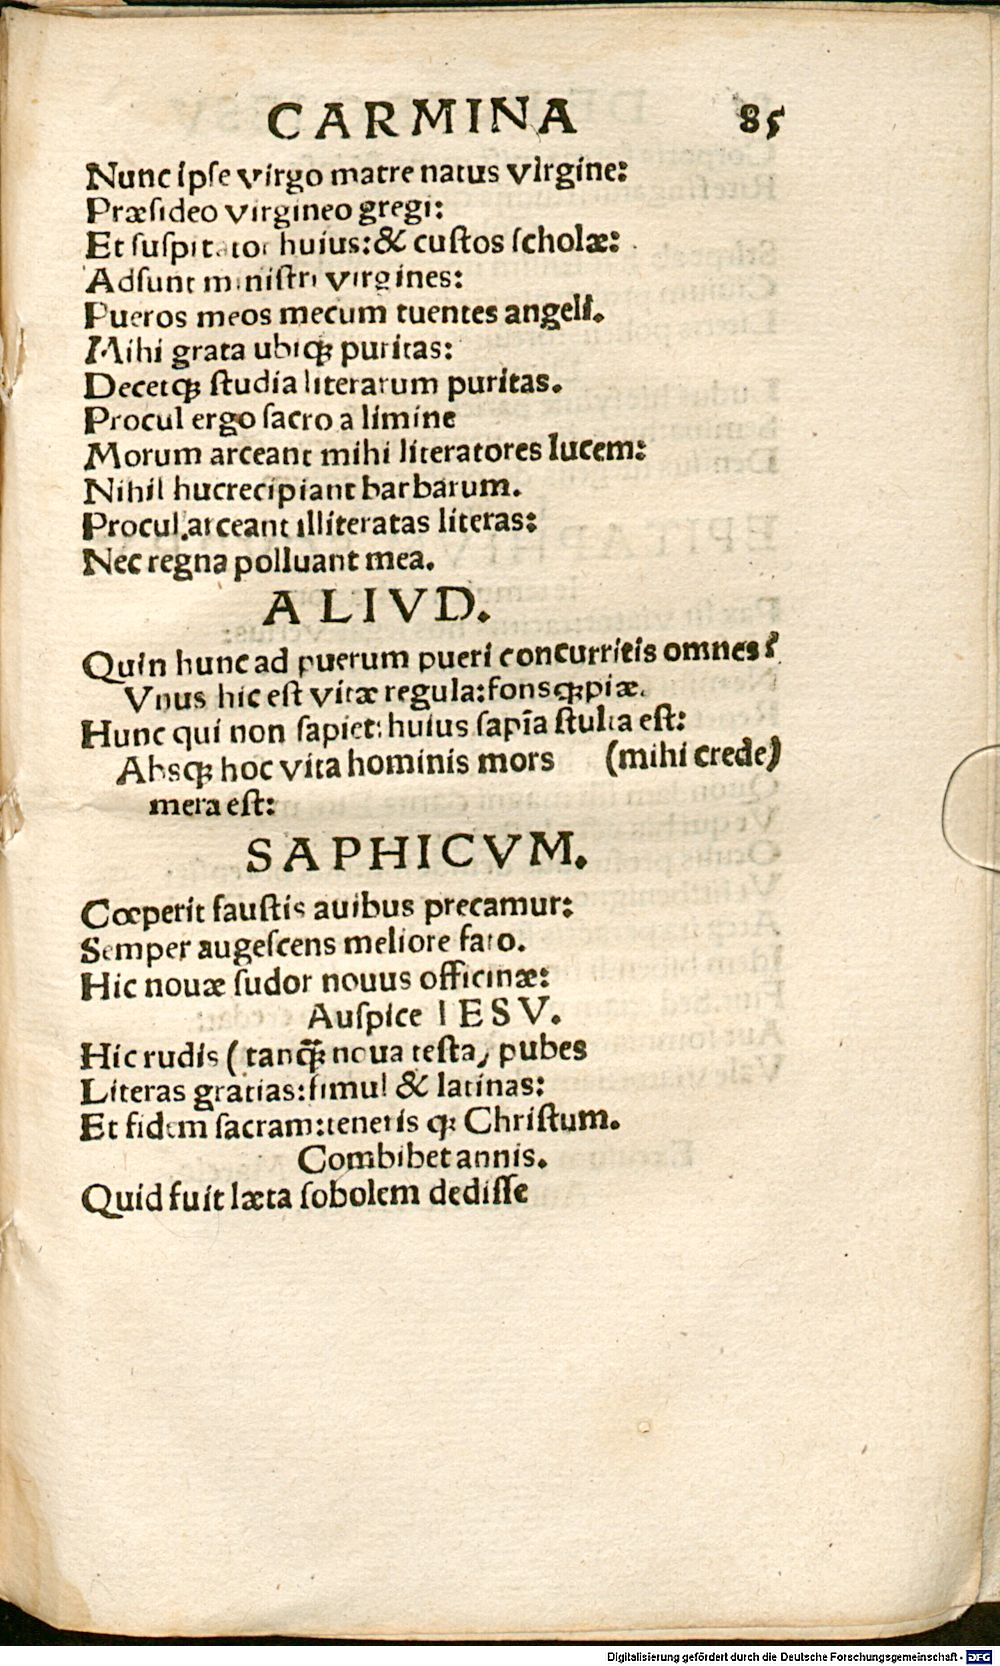 CARMINA 85
Nunc ipse virgo matre natus virgine:
Præsideo virgineo gregi:
Et suspitator huius: & custos scholæ:
Adsunt ministri virgines:
Pueros meos mecum tuentes angeli.
Mihi grata ubiqꝫ puritas:
Decetqꝫ studia literarum puritas.
Procul ergo sacro a limine
Morum arceant mihi literatores lucem:
Nihil huc recipiant barbarum.
Procul arceant illiteratas literas:
Nec regna polluant mea.
ALIVD.
Quin hunc ad puerum pueri concurritis omnes?
Vnus hic est vitæ regula: fonsqꝫ piæ.
Hunc qui non sapiet: huius sapīa stulta est:
Absqꝫ hoc vita hominis mors (mihi crede)
mera est:
SAPHICVM.
Cœperit faustis avibus precamur:
Semper augescens meliore fato.
Hic novæ sudor novus officinæ:
Auspice IESV.
Hic rudis (tanq̃ꝫ nova testa) pubes
Literas gratias: simul & latinas:
Et fidem sacram: teneris qꝫ Christum.
Combibet annis.
Quid fuit læta sobolem dedisse
Digitalisierung gefördert durch die Deutsche Forschungsgemeinschaft - DFG